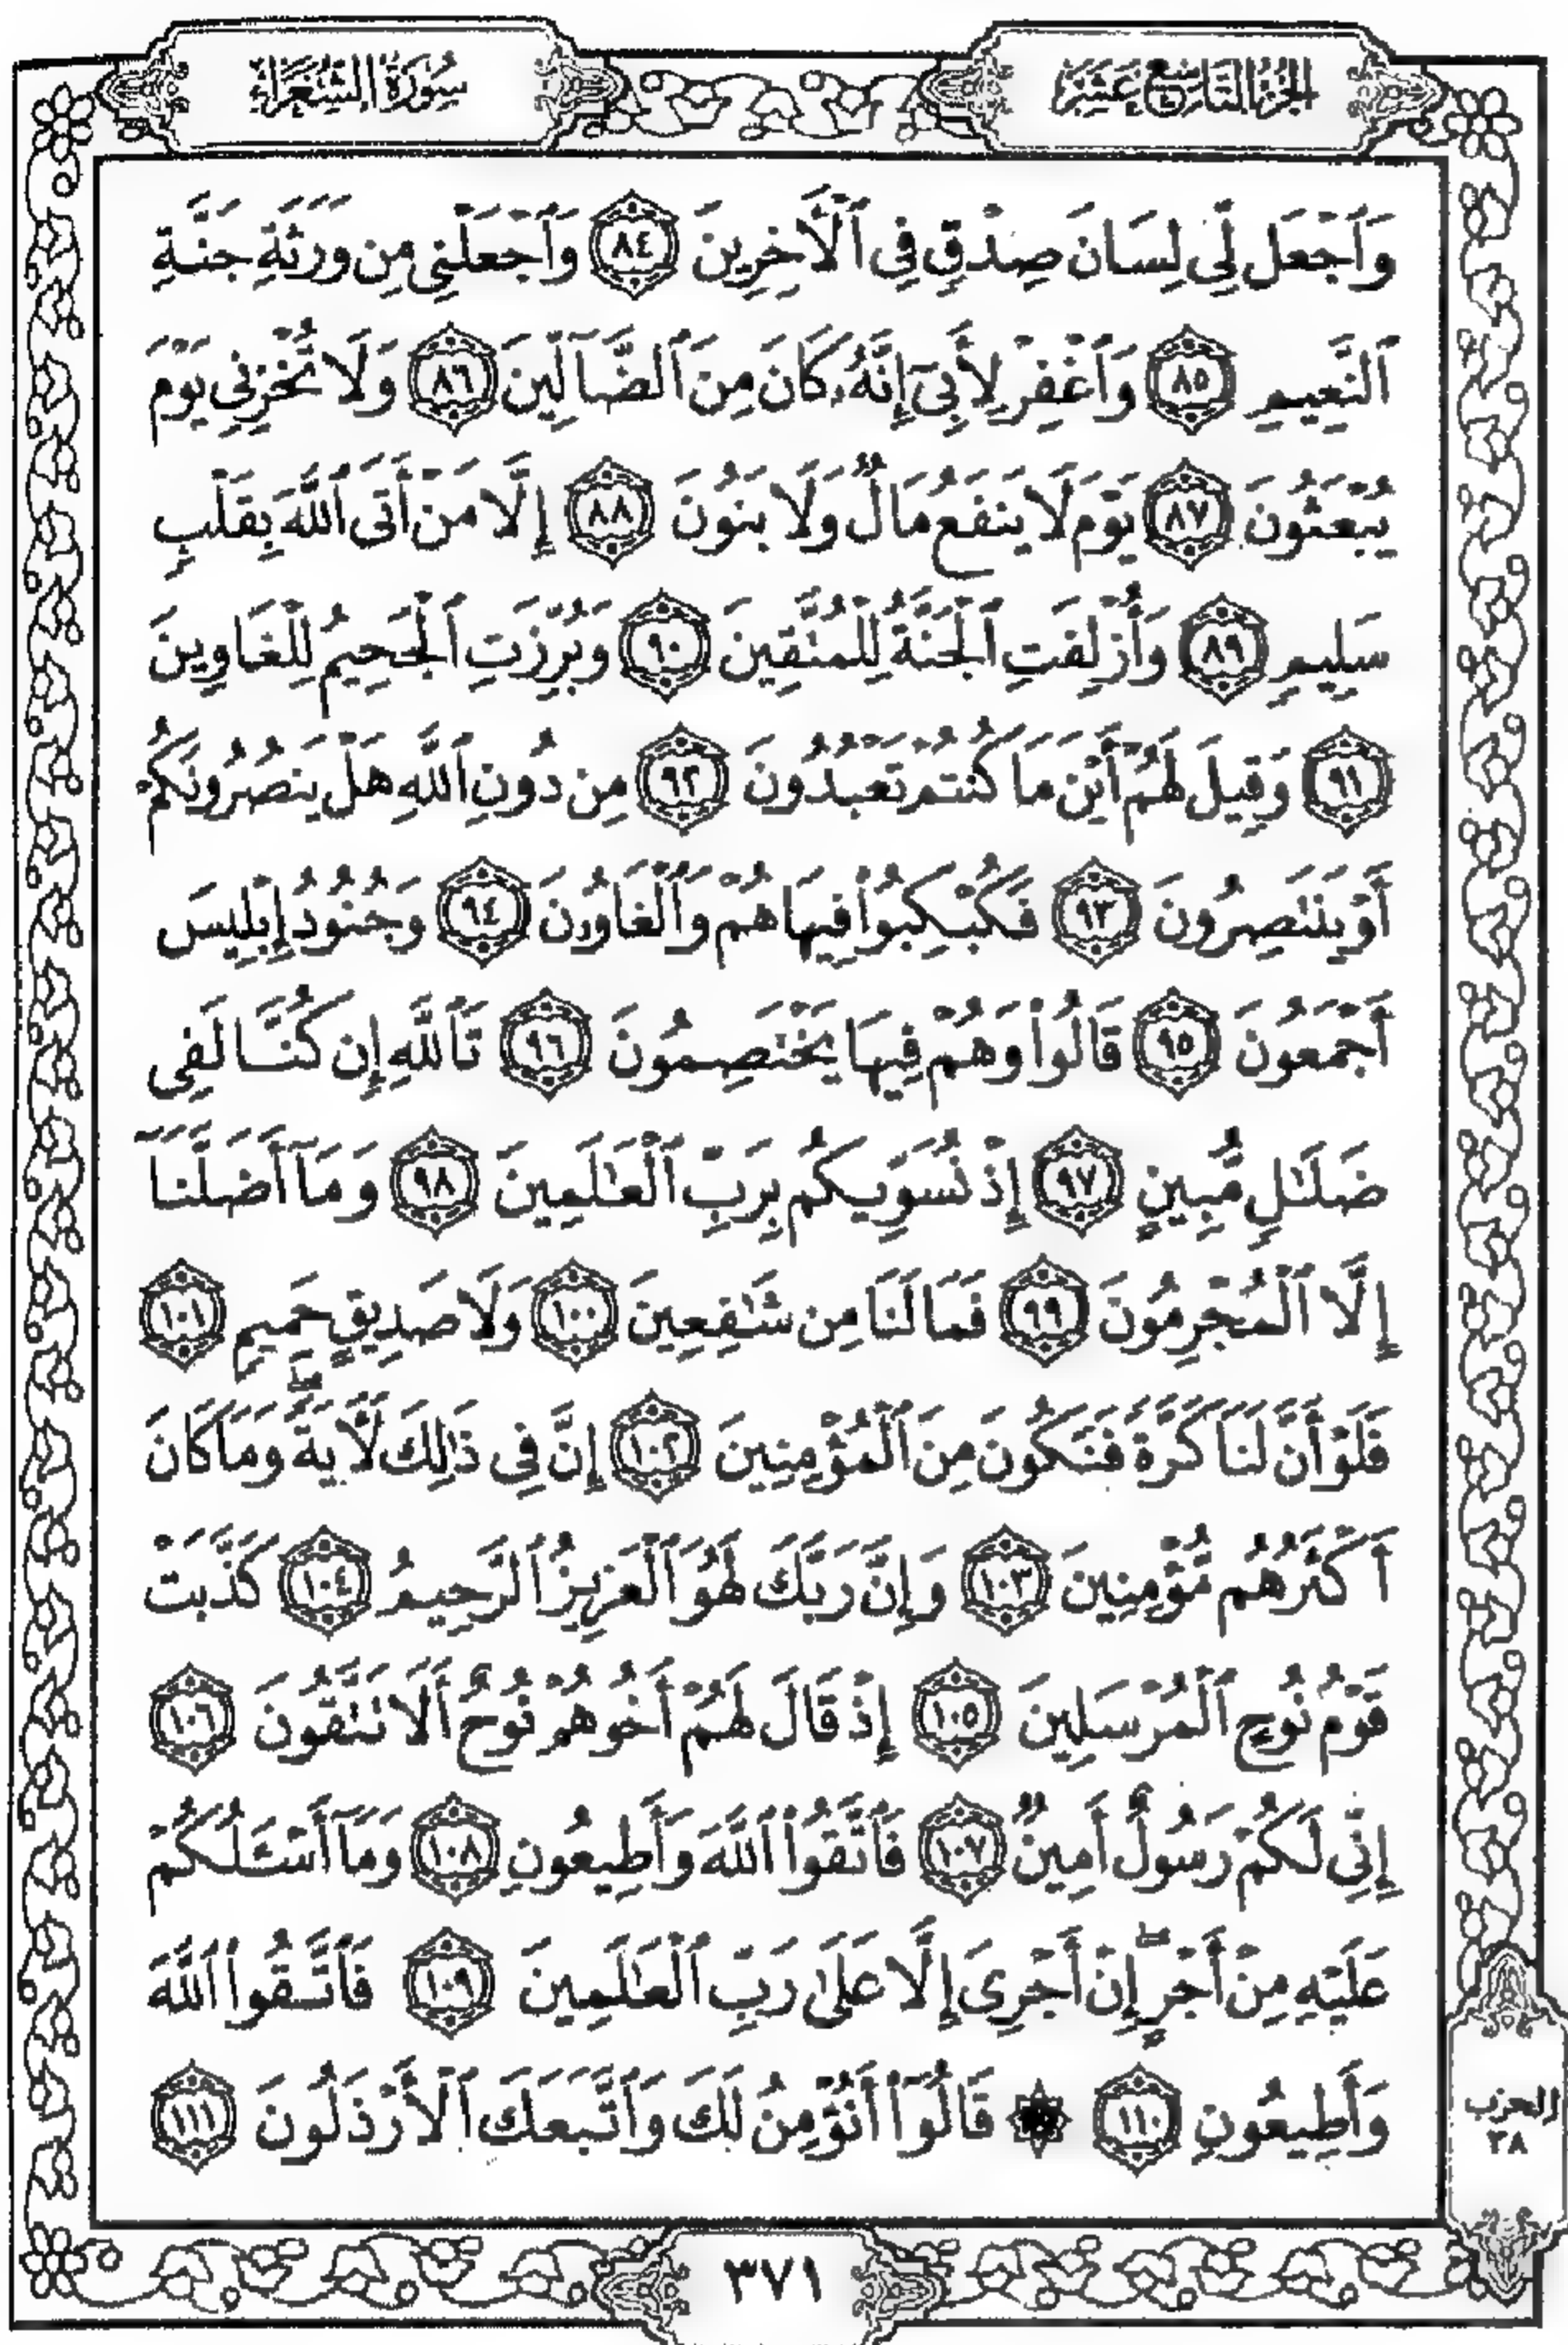 الجزء التاسع عشر
سورة الشعراء
وَٱجْعَل لِّى لِسَانَ صِدْقٍ فِى ٱلْـَٔاخِرِينَ ٨٤ وَٱجْعَلْنِى مِن وَرَثَةِ جَنَّةِ
ٱلنَّعِيمِ ٨٥ وَٱغْفِرْ لِأَبِىٓ إِنَّهُۥ كَانَ مِنَ ٱلضَّآلِّينَ ٨٦ وَلَا تُخْزِنِى يَوْمَ
يُبْعَثُونَ ٨٧ يَوْمَ لَا يَنفَعُ مَالٌ وَلَا بَنُونَ ٨٨ إِلَّا مَنْ أَتَى ٱللَّهَ بِقَلْبٍ
سَلِيمٍ ٨٩ وَأُزْلِفَتِ ٱلْجَنَّةُ لِلْمُتَّقِينَ ٩٠ وَبُرِّزَتِ ٱلْجَحِيمُ لِلْغَاوِينَ
٩١ وَقِيلَ لَهُمْ أَيْنَ مَا كُنتُمْ تَعْبُدُونَ ٩٢ مِن دُونِ ٱللَّهِ هَلْ يَنصُرُونَكُمْ
أَوْ يَنتَصِرُونَ ٩٣ فَكُبْكِبُوا۟ فِيهَا هُمْ وَٱلْغَاوُۥنَ ٩٤ وَجُنُودُ إِبْلِيسَ
أَجْمَعُونَ ٩٥ قَالُوا۟ وَهُمْ فِيهَا يَخْتَصِمُونَ ٩٦ تَٱللَّهِ إِن كُنَّا لَفِى
ضَلَٰلٍ مُّبِينٍ ٩٧ إِذْ نُسَوِّيكُم بِرَبِّ ٱلْعَٰلَمِينَ ٩٨ وَمَآ أَضَلَّنَآ
إِلَّا ٱلْمُجْرِمُونَ ٩٩ فَمَا لَنَا مِن شَٰفِعِينَ ١٠٠ وَلَا صَدِيقٍ حَمِيمٍ ١٠١
فَلَوْ أَنَّ لَنَا كَرَّةً فَنَكُونَ مِنَ ٱلْمُؤْمِنِينَ ١٠٢ إِنَّ فِى ذَٰلِكَ لَـَٔايَةً ۖ وَمَا كَانَ
أَكْثَرُهُم مُّؤْمِنِينَ ١٠٣ وَإِنَّ رَبَّكَ لَهُوَ ٱلْعَزِيزُ ٱلرَّحِيمُ ١٠٤ كَذَّبَتْ
قَوْمُ نُوحٍ ٱلْمُرْسَلِينَ ١٠٥ إِذْ قَالَ لَهُمْ أَخُوهُمْ نُوحٌ أَلَا تَتَّقُونَ ١٠٦
إِنِّى لَكُمْ رَسُولٌ أَمِينٌ ١٠٧ فَٱتَّقُوا۟ ٱللَّهَ وَأَطِيعُونِ ١٠٨ وَمَآ أَسْـَٔلُكُمْ
عَلَيْهِ مِنْ أَجْرٍ ۖ إِنْ أَجْرِىَ إِلَّا عَلَىٰ رَبِّ ٱلْعَٰلَمِينَ ١٠٩ فَٱتَّقُوا۟ ٱللَّهَ
وَأَطِيعُونِ ١١٠ ۞ قَالُوٓا۟ أَنُؤْمِنُ لَكَ وَٱتَّبَعَكَ ٱلْأَرْذَلُونَ ١١١
الحزب
٣٨
٣٧١